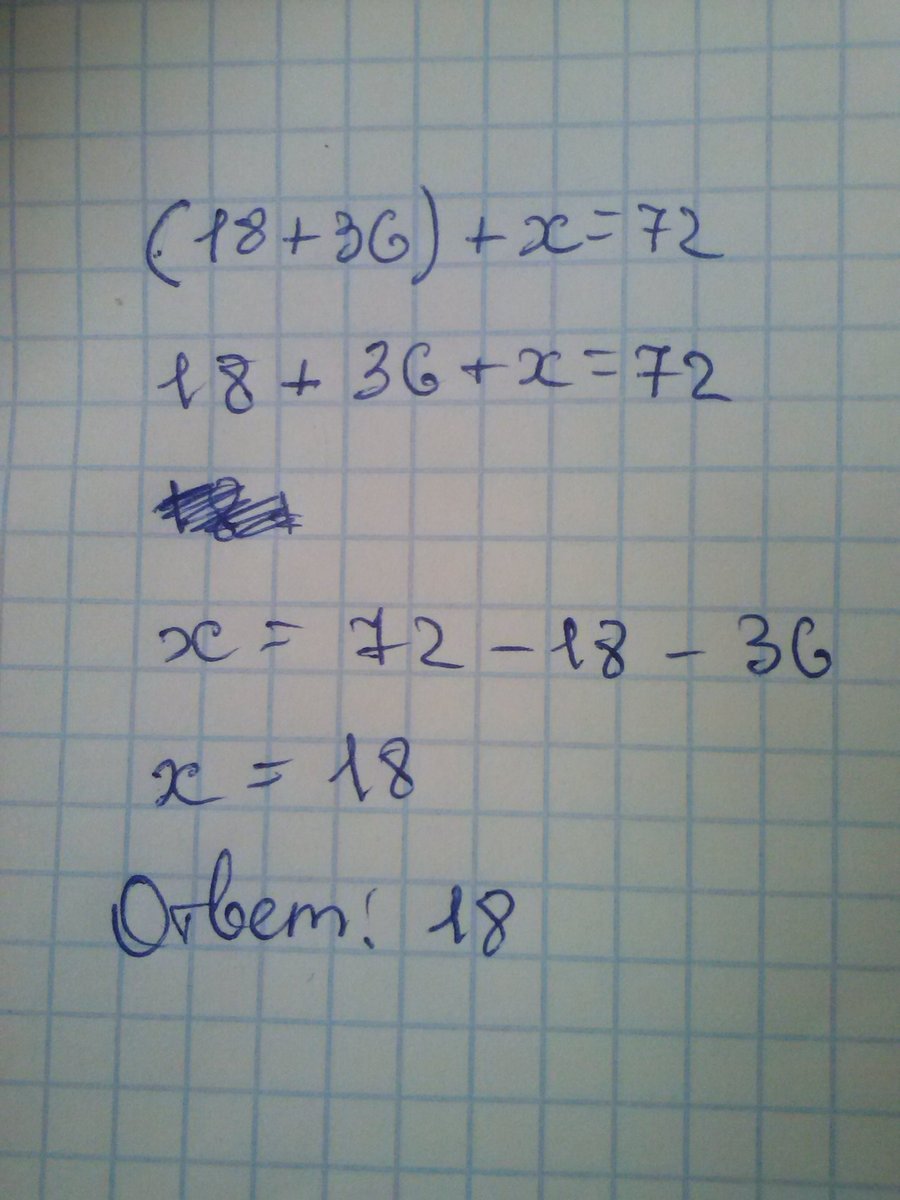 (18+36)+x=72
18+36+x=72
x = 72-18-36
x = 18
Ответ: 18